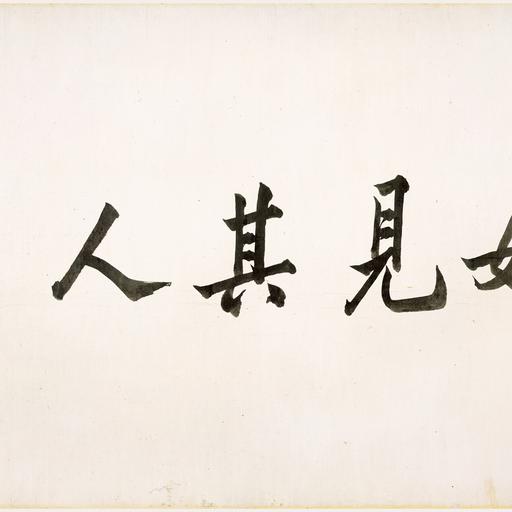 見其人